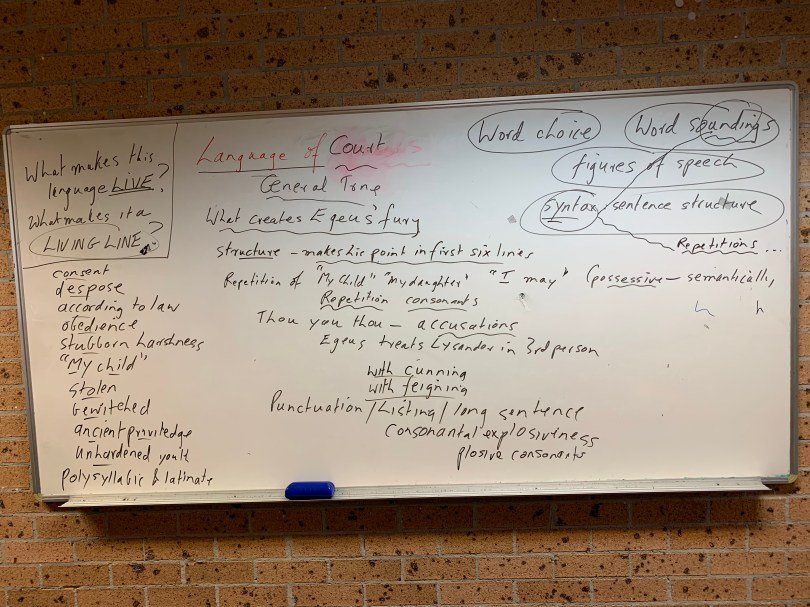 What makes this
language LIVE?
What makes it a
LIVING LINE?
consent
despose
according to law
obedience
stubborn harshness
"My child"
stolen
bewitched
ancient priviledge
unhardened youth
polysyllabic & latinate
Language of Court
General Tone
What creates Egeus' fury
structure - makes his point in first six lines
Repetition of "My child" "my daughter" "I may" (possessive - semantically,
Repetition consonants
Thou you thou - accusations
Egeus treats Lysander in 3rd person
with cunning
with feigning
Punctuation / Listing / long sentence
consonantal explosiveness
plosive consonants
Word choice
Word soundings
figures of speech
syntax sentence structure
Repetitions ...